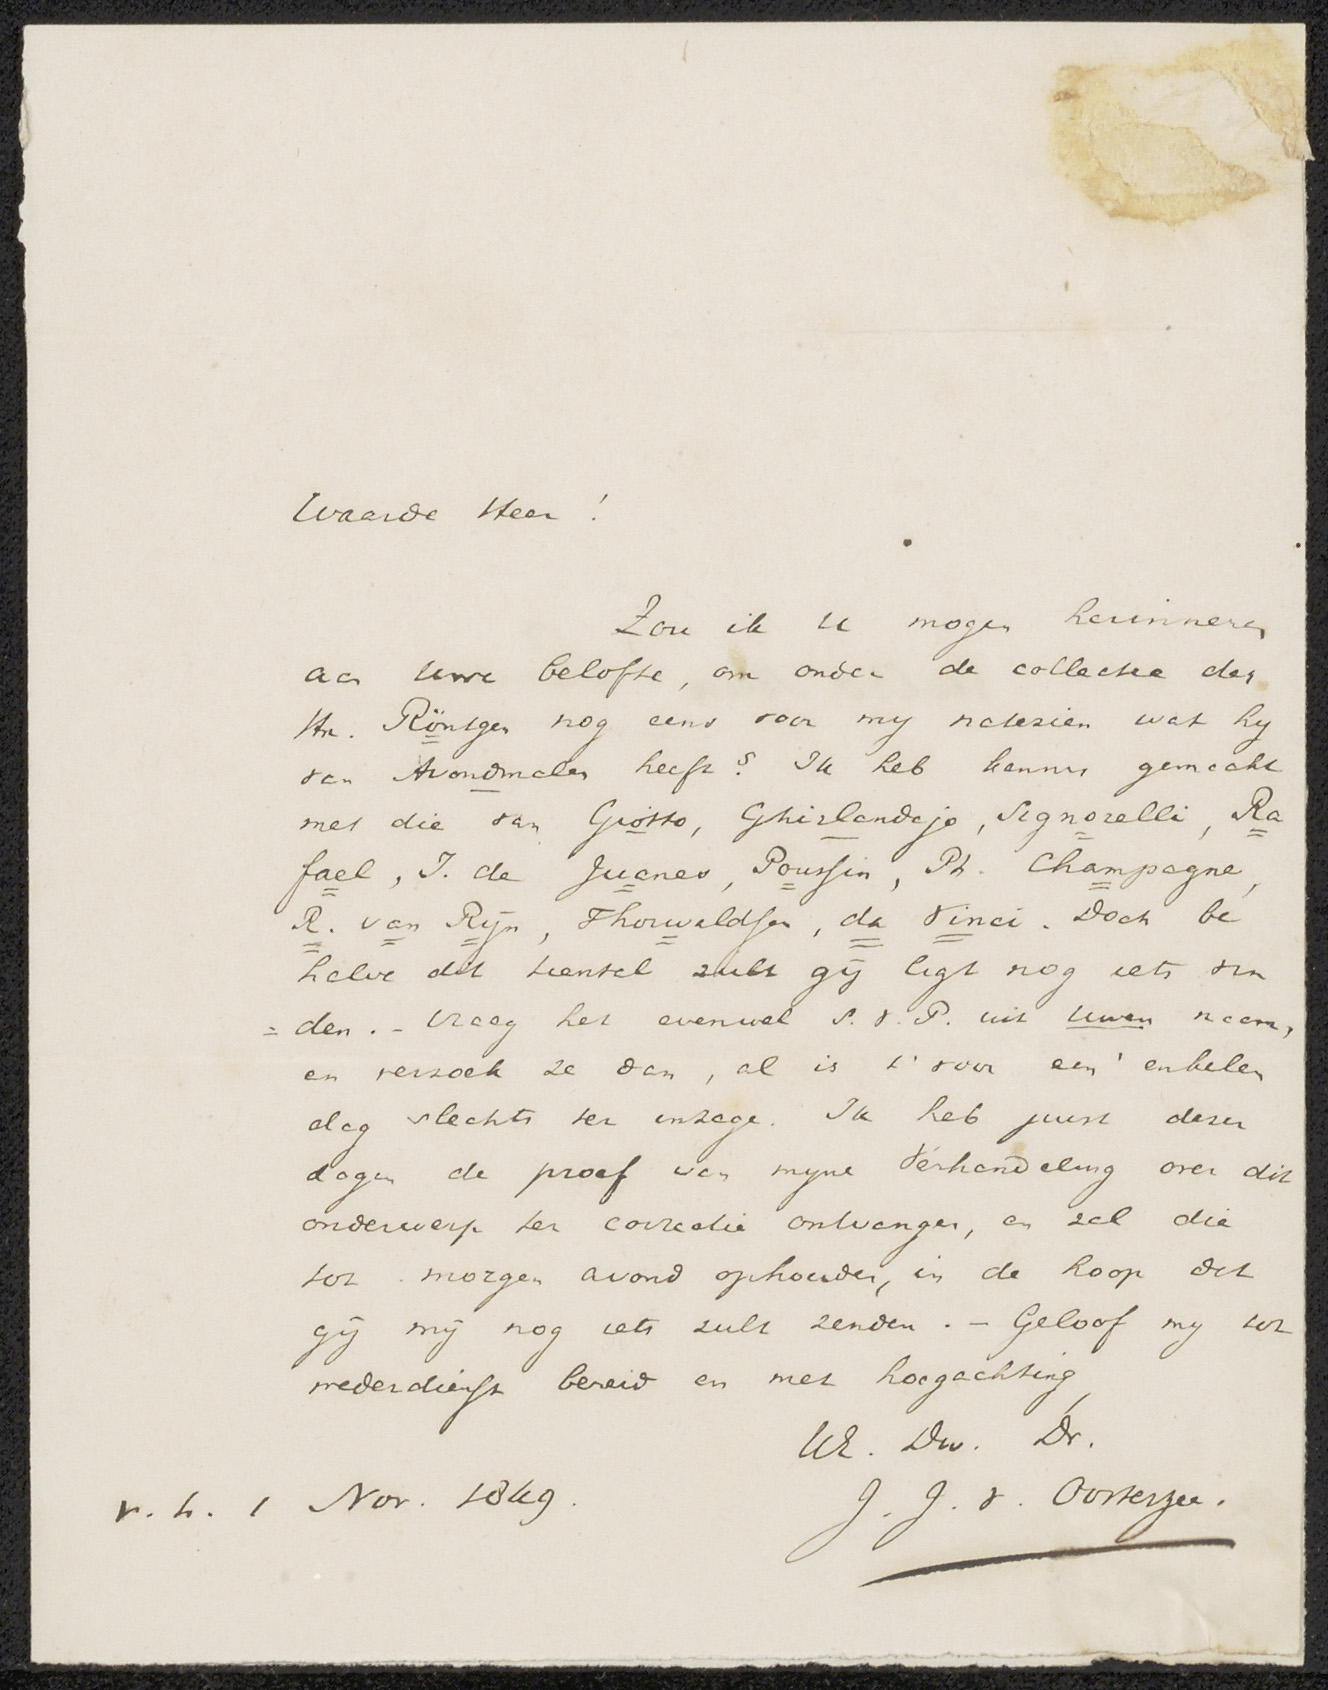 Waarde Heer!
Zou ik U mogen herinneren
aan uwe belofte, om onder de collectie des
Hn. Röntgen nog eens voor mij natezien wat hij
van Avondmalen heeft? Ik heb kennis gemaakt
met die van Giotto, Ghirlandajo, Signorelli, Ra
fael, J. de Juanes, Poussin, Ph. Champagne,
R. van Rijn, Thorwaldsen, da Vinci. Doch be
halve dit tiental zult gij ligt nog iets vin
= den. - Vraag het evenwel s. v. P. uit uwen naam,
en verzoek ze dan, al is 't voor een' enkelen
dag slechts ter inzage. Ik heb juist dezer
dagen de proef van mijne Verhandeling over dit
onderwerp ter correctie ontvangen, en zal die
tot morgen avond ophouden, in de hoop dat
gij mij nog iets zult zenden. - Geloof mij tot
wederdienst bereid en met hoogachting,
UE. Dw. Dr.
J. J. v. Oosterzee.
v. h. 1 Nov. 1849.